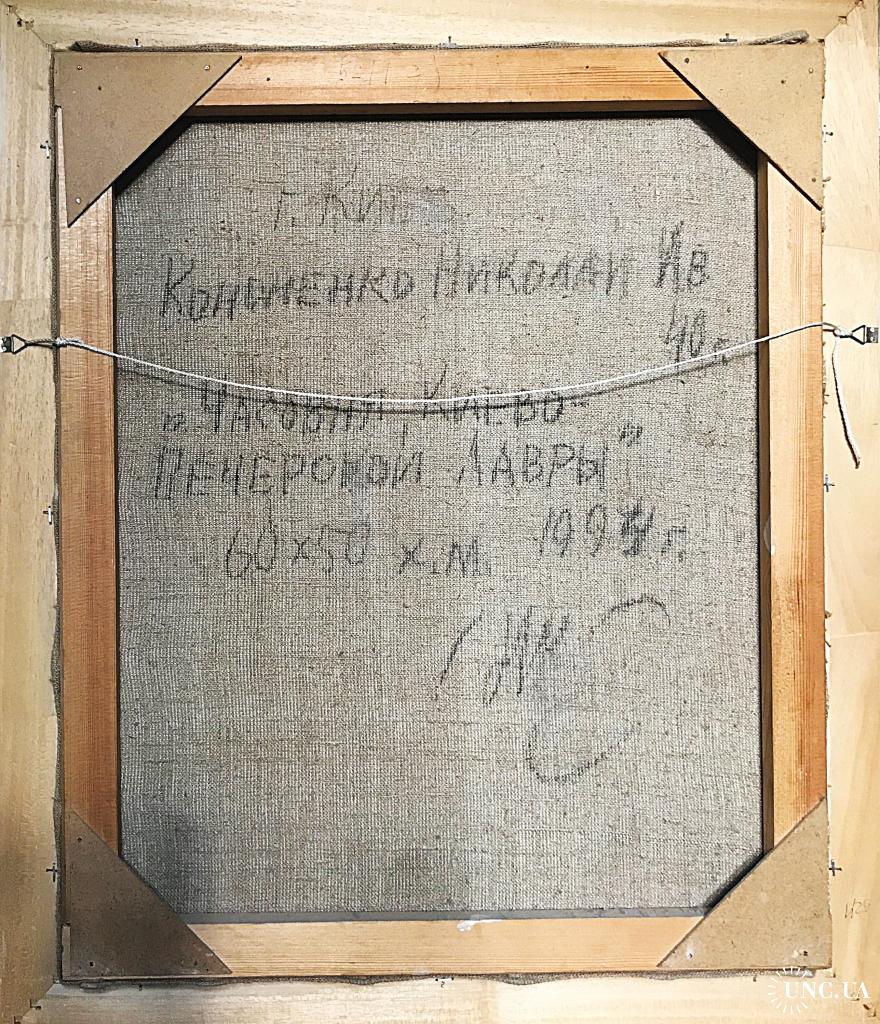 г. Киев
Конышенко Николай Ив
40 г.
„Часовня Киево-
Печерской Лавры"
60х50 х.м. 1994 г.
UNC.UA